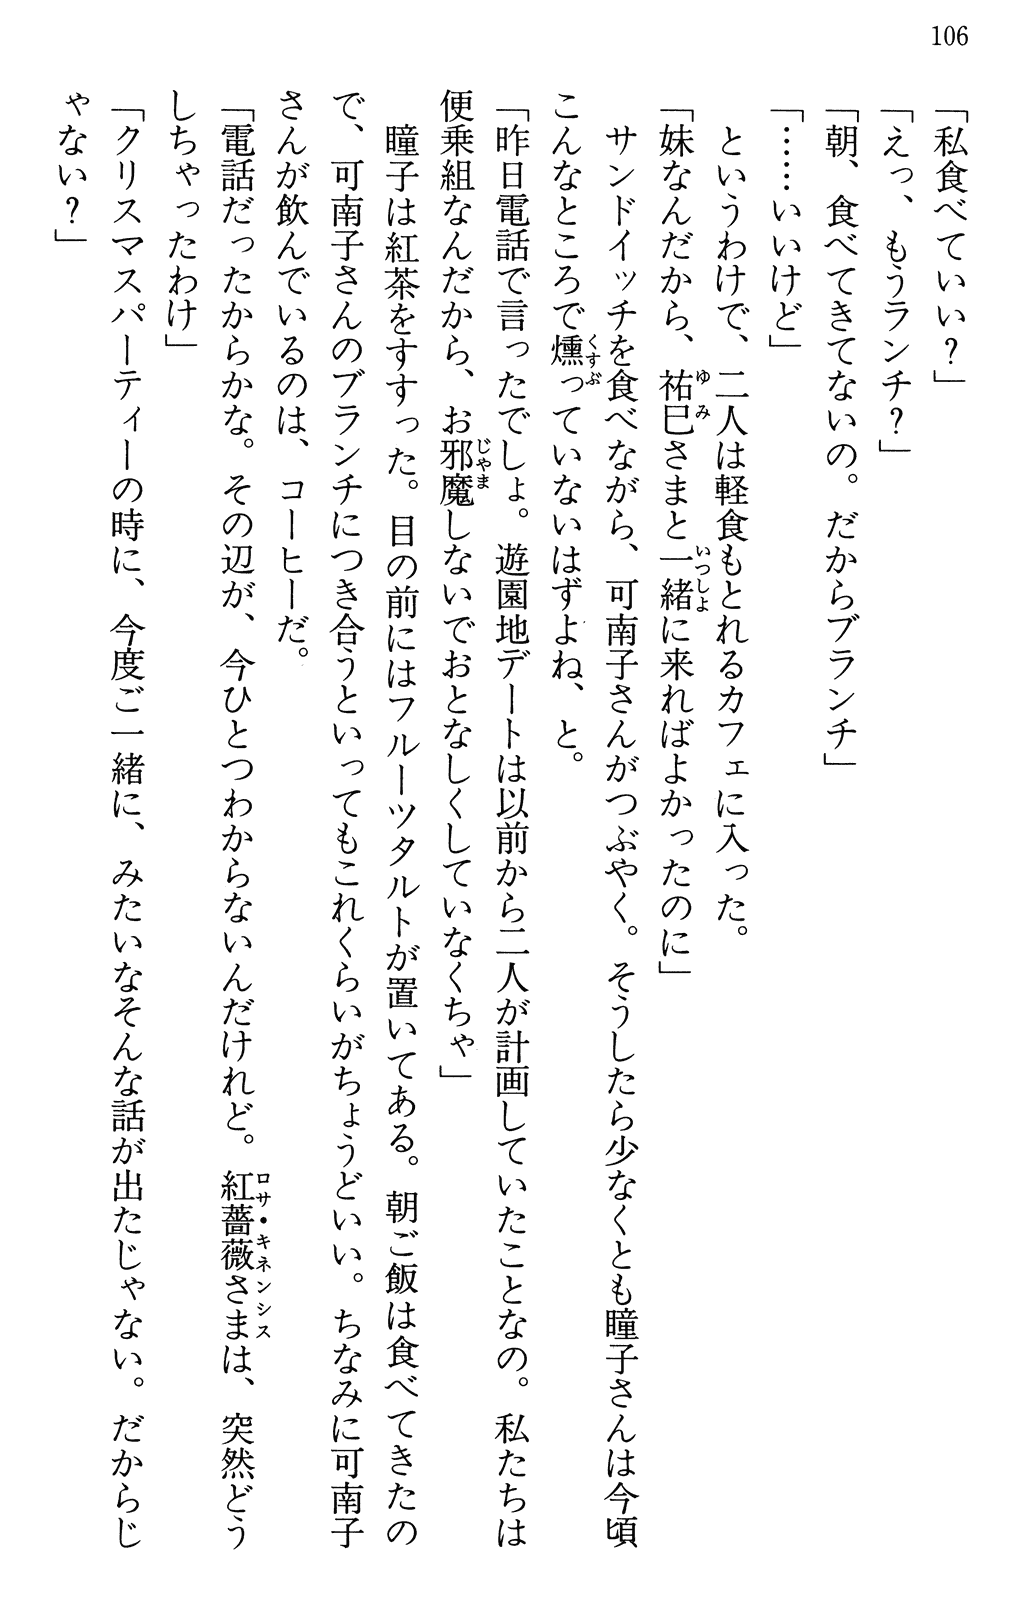 106
「私食べていい？」
「えっ、もうランチ？」
「朝、食べてきてないの。だからブランチ」
「……いいけど」
というわけで、二人は軽食もとれるカフェに入った。
「妹なんだから、祐巳さまと一緒に来ればよかったのに」
サンドイッチを食べながら、可南子さんがつぶやく。そうしたら少なくとも瞳子さんは今頃
こんなところで燻っていないはずよね、と。
「昨日電話で言ったでしょ。遊園地デートは以前から二人が計画していたことなの。私たちは
便乗組なんだから、お邪魔しないでおとなしくしていなくちゃ」
瞳子は紅茶をすすった。目の前にはフルーツタルトが置いてある。朝ご飯は食べてきたの
で、可南子さんのブランチにつき合うといってもこれくらいがちょうどいい。ちなみに可南子
さんが飲んでいるのは、コーヒーだ。
「電話だったからかな。その辺が、今ひとつわからないんだけれど。紅薔薇さまは、突然どう
しちゃったわけ」
「クリスマスパーティーの時に、今度ご一緒に、みたいなそんな話が出たじゃない。だからじ
ゃない？」
ゆみ
いっしよ
くすぶ
じゃま
ロサ・キネンシス